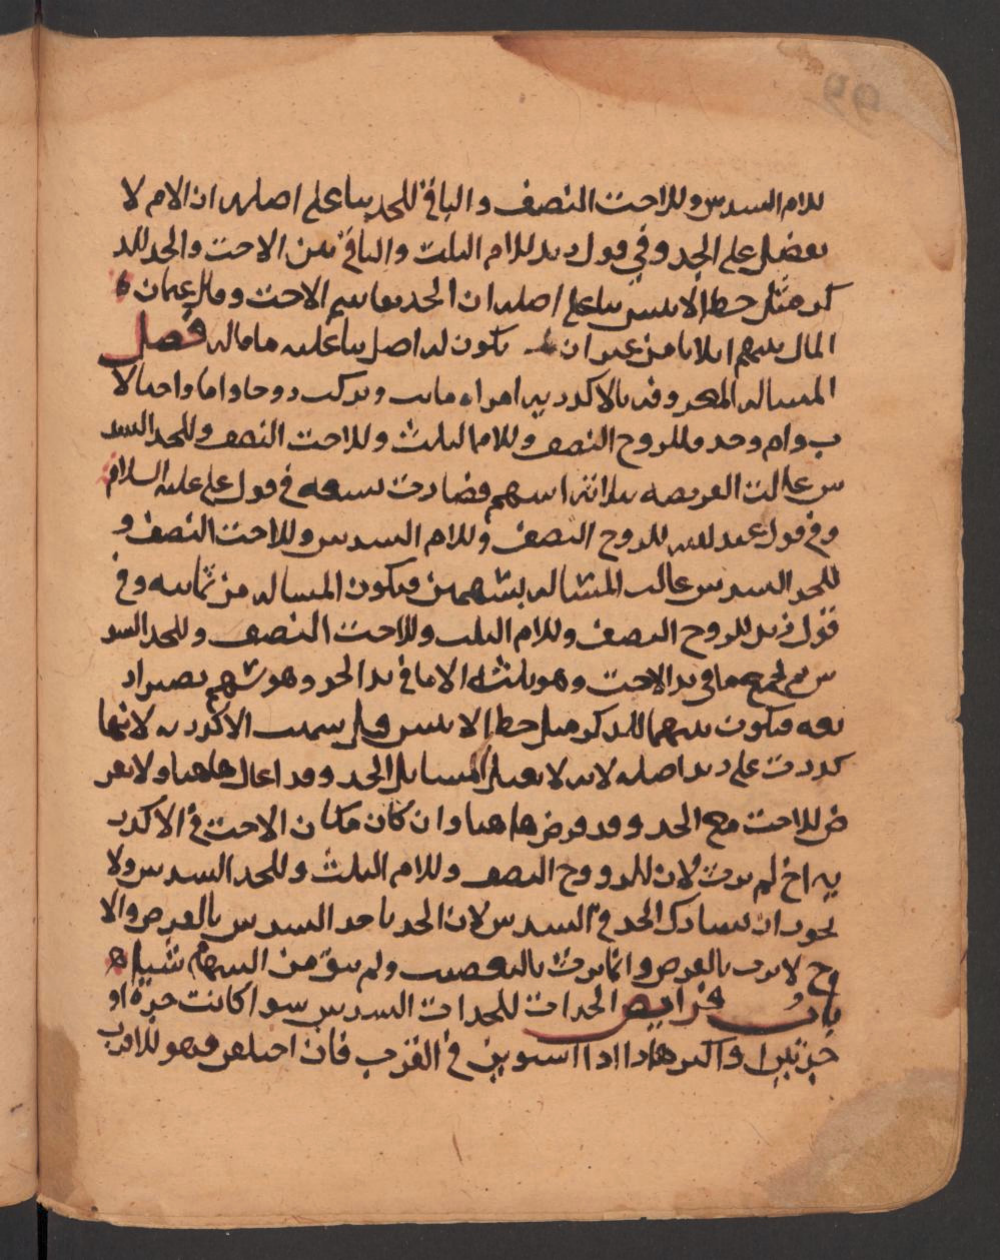 للام السدس وللاخت النصف والباقي للجد بناء على اصله ان الام لا
تفضل على الجد وفي قول زيد للام الثلث والباقي بين الاخت والجد للذ
كر مثل حظ الانثيين بناء على اصله ان الجد يقاسم الاخت وقال عثمان
المال بينهم اثلاثا من غير ان يكون له اصل بنا عليه ما قاله فصل
المسالة المعروفة بالاكدرية امراة ماتت وتركت زوجا واما واختا لا
ب وام وجد فللزوج النصف وللام الثلث وللاخت النصف وللجد السد
س عالت الفريضة بثلاثة اسهم فصارت تسعة في قول علي عليه السلام
وفي قول عبد الله للزوج النصف وللام السدس وللاخت النصف و
للجد السدس عالت المسالة بسهمين فيكون المسالة من ثمانية وفي
قول زيد للزوج النصف وللام الثلث وللاخت النصف وللجد السد
س ثم يجمع ما في يد الاخت وهو ثلثة الى ما في يد الجد وهو سهم يصير ار
بعة فيكون بينهما للذكر مثل حظ الانثيين قيل سميت الاكدرية لانها
كدرت على زيد اصله لانه لا يعيل مسايل الجد وقد اعال هاهنا ولا يفر
ض للاخت مع الجد وقد فرض هاهنا وان كان مكان الاخت في الاكدر
ية اخ لم يرث لان للزوج النصف وللام الثلث وللجد السدس ولا
يجوز ان يشارك الجد في السدس لان الجد ياخذ السدس بالفرض والا
خ لا يرث بالفرض وانما يرث بالتعصيب ولم يبق من السهام شيا
باب فرايض الجدات للجدات السدس سوا كانت جدة او
جدتين او اكثر هذا اذا استوين في القرب فان اختلفن فهو للاقرب